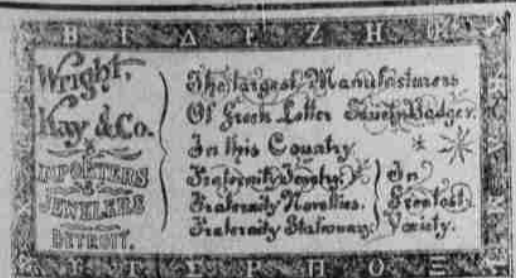 B Γ Δ E Z H Θ
Wright,
Kay & Co.
IMPORTERS
&
JEWELERS
DETROIT.
The largest Manufacturers
Of Greek Letter Society Badges
In this Country.
Fraternity Jewelry.
Fraternity Novelties.
Fraternity Stationary.
In
Greatest
Variety.
Υ Τ Σ Ρ Π Ο Ξ